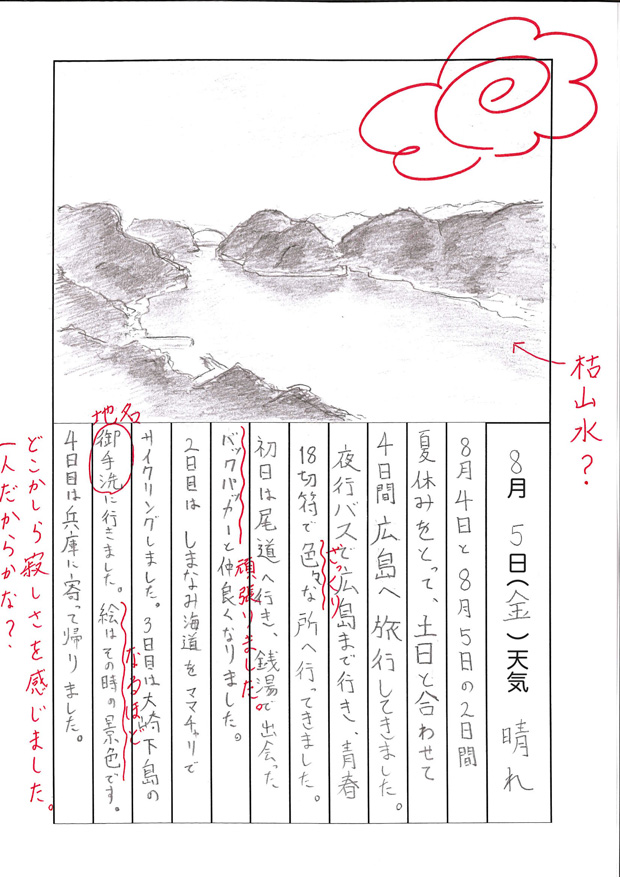 8月5日(金)天気 晴れ
8月4日と8月5日の2日間
夏休みをとって、土日と合わせて
4日間広島へ旅行してきました。
夜行バスで広島まで行き、青春
18切符で色々な所へ行ってきました。
ざっくり
初日は尾道へ行き、銭湯で出会った
頑張りました。
バックパッカーと仲良くなりました。
2日目は しまなみ海道をママチャリで
サイクリングしました。3日目は大崎下島の
なるほど
地名
御手洗に行きました。絵はその時の景色です。
4日目は兵庫に寄って帰りました。
枯山水?
どこかしら寂しさを感じました。
一人だからかな?